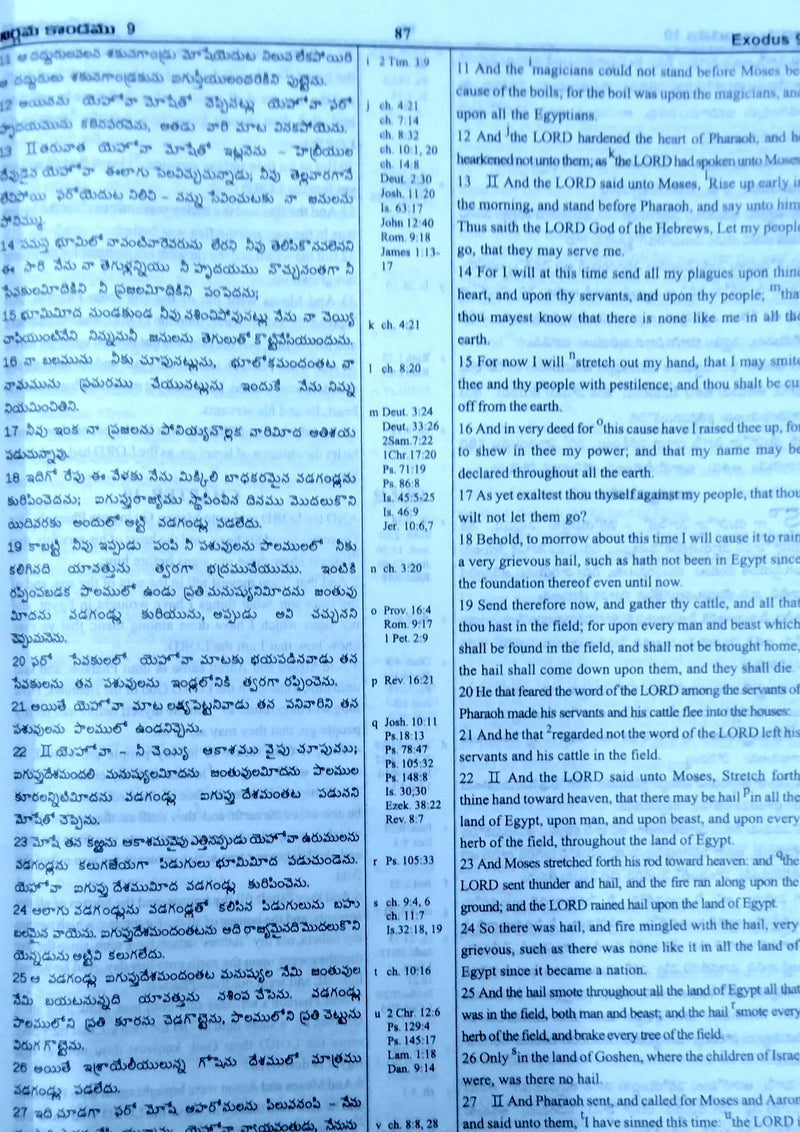 నిర్గమ కాండము 9
87
Exodus 9
11 ఆ దద్దురులవలన శకునగాండ్రు మోషేయెదుట నిలువ లేకపోయిరి
ఆ దద్దురులు శకునగాండ్రకును ఐగుప్తీయులందరికిని పుట్టెను.
12 అయినను యెహోవా మోషేతో చెప్పినట్లు యెహోవా ఫరో
హృదయమును కఠినపరచెను, అతడు వారి మాట వినకపోయెను.
13 II తరువాత యెహోవా మోషేతో ఇట్లనెను – హెబ్రీయుల
దేవుడైన యెహోవా ఈలాగు సెలవిచ్చుచున్నాడు; నీవు తెల్లవారగానే
లేచిపోయి ఫరోయెదుట నిలిచి – నన్ను సేవించుటకు నా జనులను
పోనిమ్ము
14 సమస్త భూమిలో నావంటివారెవరును లేరని నీవు తెలిసికొనవలెనని
ఈ సారి నేను నా తెగుళ్లన్నియు నీ హృదయము నొచ్చునంతగా నీ
సేవకులమీదికిని నీ ప్రజలమీదికిని పంపెదను;
15 భూమిమీద నుండకుండ నీవు నశించిపోవునట్లు నేను నా చెయ్యి
చాపియుంటినేని నిన్నునునీ జనులను తెగులుతో కొట్టివేసియుందును.
16 నా బలమును నీకు చూపునట్లును, భూలోకమందంతట నా
నామమును ప్రచురము చేయునట్లును ఇందుకే నేను నిన్ను
నియమించితిని.
17 నీవు ఇంక నా ప్రజలను పోనియ్యనొల్లక వారిమీద ఆతిశయ
పడుచున్నావు.
18 ఇదిగో రేపు ఈ వేళకు నేను మిక్కిలి బాధకరమైన వడగండ్లను
కురిపించెదను; ఐగుప్తురాజ్యము స్థాపించిన దినము మొదలుకొని
యిదివరకు అందులో అట్టి వడగండ్లు పడలేదు.
19 కాబట్టి నీవు ఇప్పుడు పంపి నీ పశువులను పొలములలో నీకు
కలిగినది యావత్తును త్వరగా భద్రముచేయుము. ఇంటికి
రప్పింపబడక పొలములో ఉండు ప్రతి మనుష్యునిమీదను జంతువు
మీదను వడగండ్లు కురియును, అప్పుడు అవి చచ్చునని
చెప్పుమనెను.
20 ఫరో సేవకులలో యెహోవా మాటకు భయపడినవాడు తన
సేవకులను తన పశువులను ఇండ్లలోనికి త్వరగా రప్పించెను.
21 అయితే యెహోవా మాట లక్ష్యపెట్టనివాడు తన పనివారిని తన
పశువులను పొలములో ఉండనిచ్చెను.
22 II యెహోవా – నీ చెయ్యి ఆకాశము వైపు చూపుము;
ఐగుప్తుదేశమందలి మనుష్యులమీదను జంతువులమీదను పొలముల
కూరలన్నిటిమీదను వడగండ్లు ఐగుప్తు దేశమంతట పడునని
మోషేతో చెప్పెను.
23 మోషే తన కఱ్ఱను ఆకాశమువైపు ఎత్తినప్పుడు యెహోవా ఉరుములను
వడగండ్లను కలుగజేయగా పిడుగులు భూమిమీద పడుచుండెను.
యెహోవా ఐగుప్తు దేశముమీద వడగండ్లు కురిపించెను.
24 ఆలాగు వడగండ్లును వడగండ్లతో కలిసిన పిడుగులును బహు
బలమైన వాయెను. ఐగుప్తుదేశమందంతటను అది రాజ్యమైనది మొదలుకొని
యెన్నడును అట్టివి కలుగలేదు.
25 ఆ వడగండ్లు ఐగుప్తుదేశమందంతట మనుష్యుల నేమి జంతువుల
నేమి బయటనున్నది యావత్తును నశింప చేసెను. వడగండ్లు
పొలములోని ప్రతి కూరను చెడగొట్టెను, పొలములోని ప్రతి చెట్టును
విరుగ గొట్టెను.
26 అయితే ఇశ్రాయేలీయులున్న గోషెను దేశములో మాత్రము
వడగండ్లు పడలేదు.
27 ఇది చూడగా ఫరో మోషే అహరోనులను పిలువనంపి – నేను
యెహోవా న్యాయవంతుడు, నేనును
i 2 Tim. 3:9
j ch. 4:21
ch. 7:14
ch. 8:32
ch. 10:1, 20
ch. 14:8
Deut. 2:30
Josh. 11:20
Is. 63:17
John 12:40
Rom. 9:18
James 1:13-
17
k ch. 4:21
l ch. 8:20
m Deut. 3:24
Deut. 33:26
2Sam.7:22
1Chr.17:20
Ps. 71:19
Ps. 86:8
Is. 45:5-25
Is. 46:9
Jer. 10:6,7
n ch. 3:20
o Prov. 16:4
Rom. 9:17
1 Pet. 2:9
p Rev. 16:21
q Josh. 10:11
Ps.18:13
Ps. 78:47
Ps. 105:32
Ps. 148:8
Is. 30;30
Ezek. 38:22
Rev. 8:7
r Ps. 105:33
s ch. 9:4, 6
ch. 11:7
Is.32:18, 19
t ch. 10:16
u 2 Chr. 12:6
Ps. 129:4
Ps. 145:17
Lam. 1:18
Dan. 9:14
v ch. 8:8, 28
11 And the imagicians could not stand before Moses be
cause of the boils; for the boil was upon the magicians, and
upon all the Egyptians.
12 And jthe LORD hardened the heart of Pharaoh, and h
hearkened not unto them; as kthe LORD had spoken unto Moses
13 II And the LORD said unto Moses, lRise up early i
the morning, and stand before Pharaoh, and say unto him
Thus saith the LORD God of the Hebrews, Let my people
go, that they may serve me.
14 For I will at this time send all my plagues upon thine
heart, and upon thy servants, and upon thy people; mtha
thou mayest know that there is none like me in all the
earth.
15 For now I will nstretch out my hand, that I may smite
thee and thy people with pestilence; and thou shalt be cu
off from the earth.
16 And in very deed for othis cause have I raised thee up, for
to shew in thee my power; and that my name may be
declared throughout all the earth.
17 As yet exaltest thou thyself against my people, that thou
wilt not let them go?
18 Behold, to morrow about this time I will cause it to rain
a very grievous hail, such as hath not been in Egypt since
the foundation thereof even until now.
19 Send therefore now, and gather thy cattle, and all that
thou hast in the field; for upon every man and beast which
shall be found in the field, and shall not be brought home,
the hail shall come down upon them, and they shall die.
20 He that feared the word of the LORD among the servants of
Pharaoh made his servants and his cattle flee into the houses:
21 And he that 2regarded not the word of the LORD left his
servants and his cattle in the field.
22 II And the LORD said unto Moses, Stretch forth
thine hand toward heaven, that there may be hail pin all the
land of Egypt, upon man, and upon beast, and upon every
herb of the field, throughout the land of Egypt.
23 And Moses stretched forth his rod toward heaven: and qthe
LORD sent thunder and hail, and the fire ran along upon the
ground; and the LORD rained hail upon the land of Egypt.
24 So there was hail, and fire mingled with the hail, very
grievous, such as there was none like it in all the land of
Egypt since it became a nation.
25 And the hail smote throughout all the land of Egypt all that
was in the field, both man and beast; and the hail rsmote every
herb of the field, and brake every tree of the field.
26 Only sin the land of Goshen, where the children of Israe
were, was there no hail.
27 II And Pharaoh sent, and called for Moses and Aaron
and said unto them, tI have sinned this time: uthe LORD i